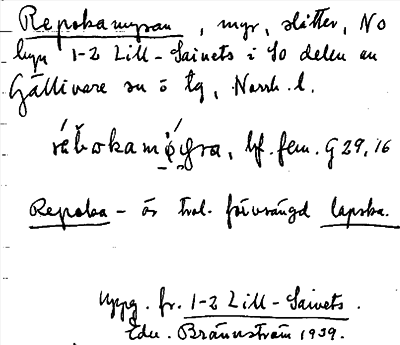 Repokamyran, myr, slåtter, NO
byn 1-2 Lill-Saivets i SO delen av
Gällivare sn ö tg, Norrb. l.
bf. fem. G 29, 16
Repoka - är trol. förvrängd lapska.
Uppg. fr. 1-2 Lill-Saivets.
Edv. Brännström 1939.